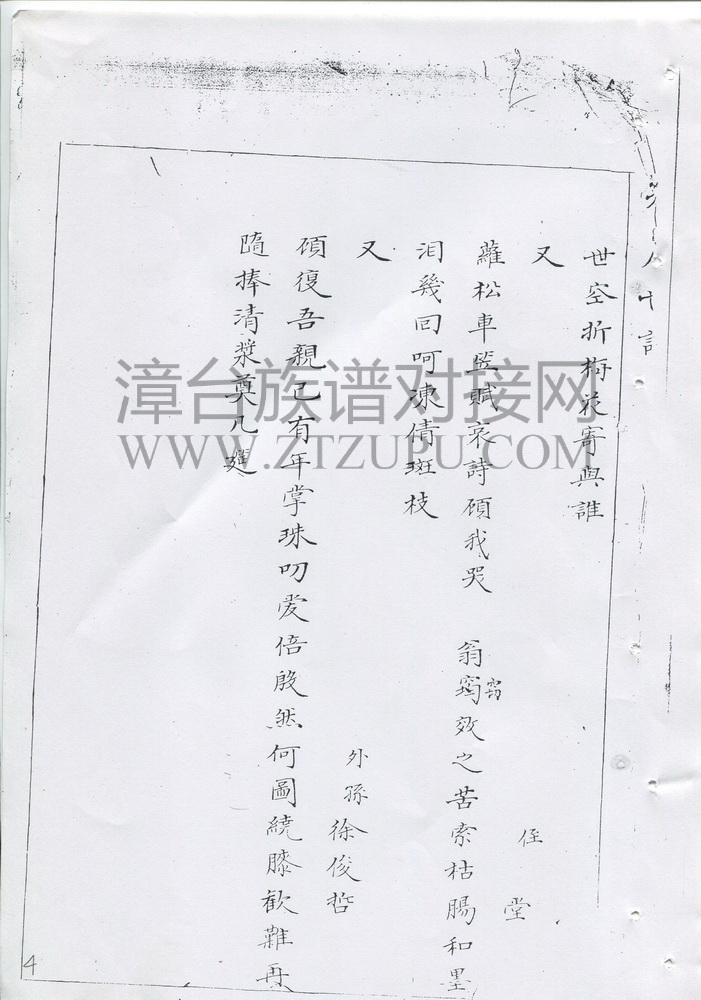 世空折梅花寄與誰
又
侄 堂
蘿松車監賦哀詩碩我哭 翁窃效之苦索枯腸和墨
窃
泪幾回呵凍倩斑枝
又
外孫徐俊哲
碩復吾親已有年掌珠叨爱倍殷然何圖繞膝歡難再
隨捧清漿奠几筵
漳台族谱对接网
WWW.ZTZUPU.COM
4